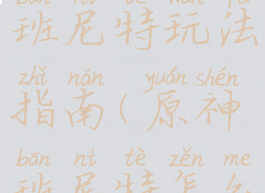 班尼特玩法
zhǐ nán yuán shén
指南(原神
bān ní tè zěn me
班尼特怎么